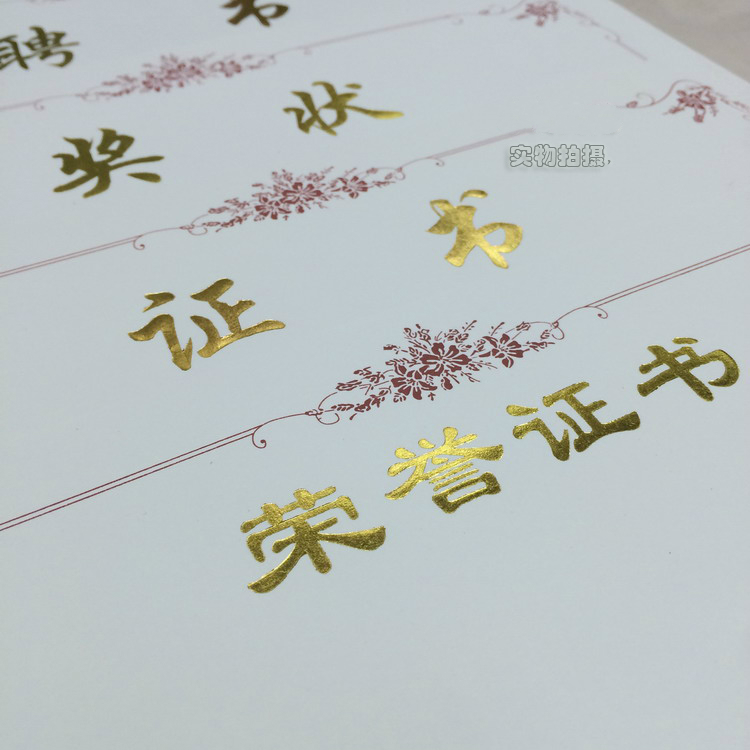 聘书
奖状
实物拍摄,
证书
荣誉证书